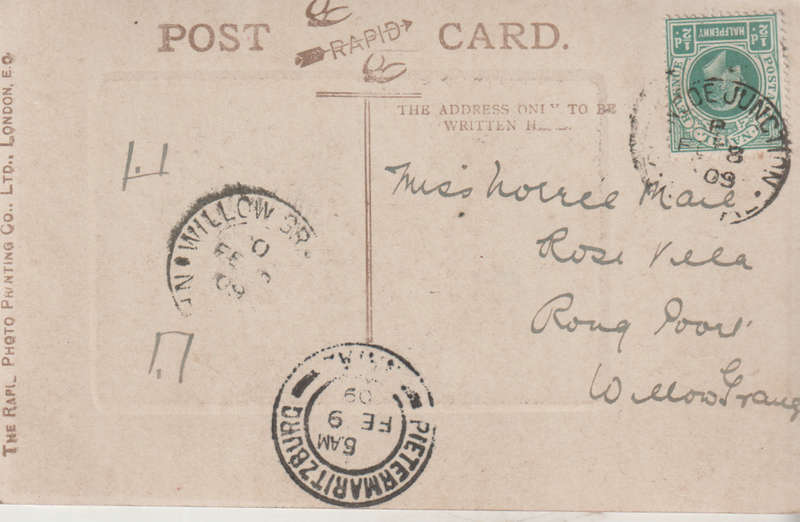 POST CARD.
RAPID
THE ADDRESS ONLY TO BE
WRITTEN H
THE RAPID PHOTO PRINTING CO., LTD., LONDON, E.C.
½d HALFPENNY ½d
POSTAGE
REVENUE
JUNCTION
FE 8
09
Miss Norrie Mare
Rose Villa
Willow Grange
WILLOW GR
FE
09
PIETERMARITZBURG
5 AM
FE 9
09
NATAL